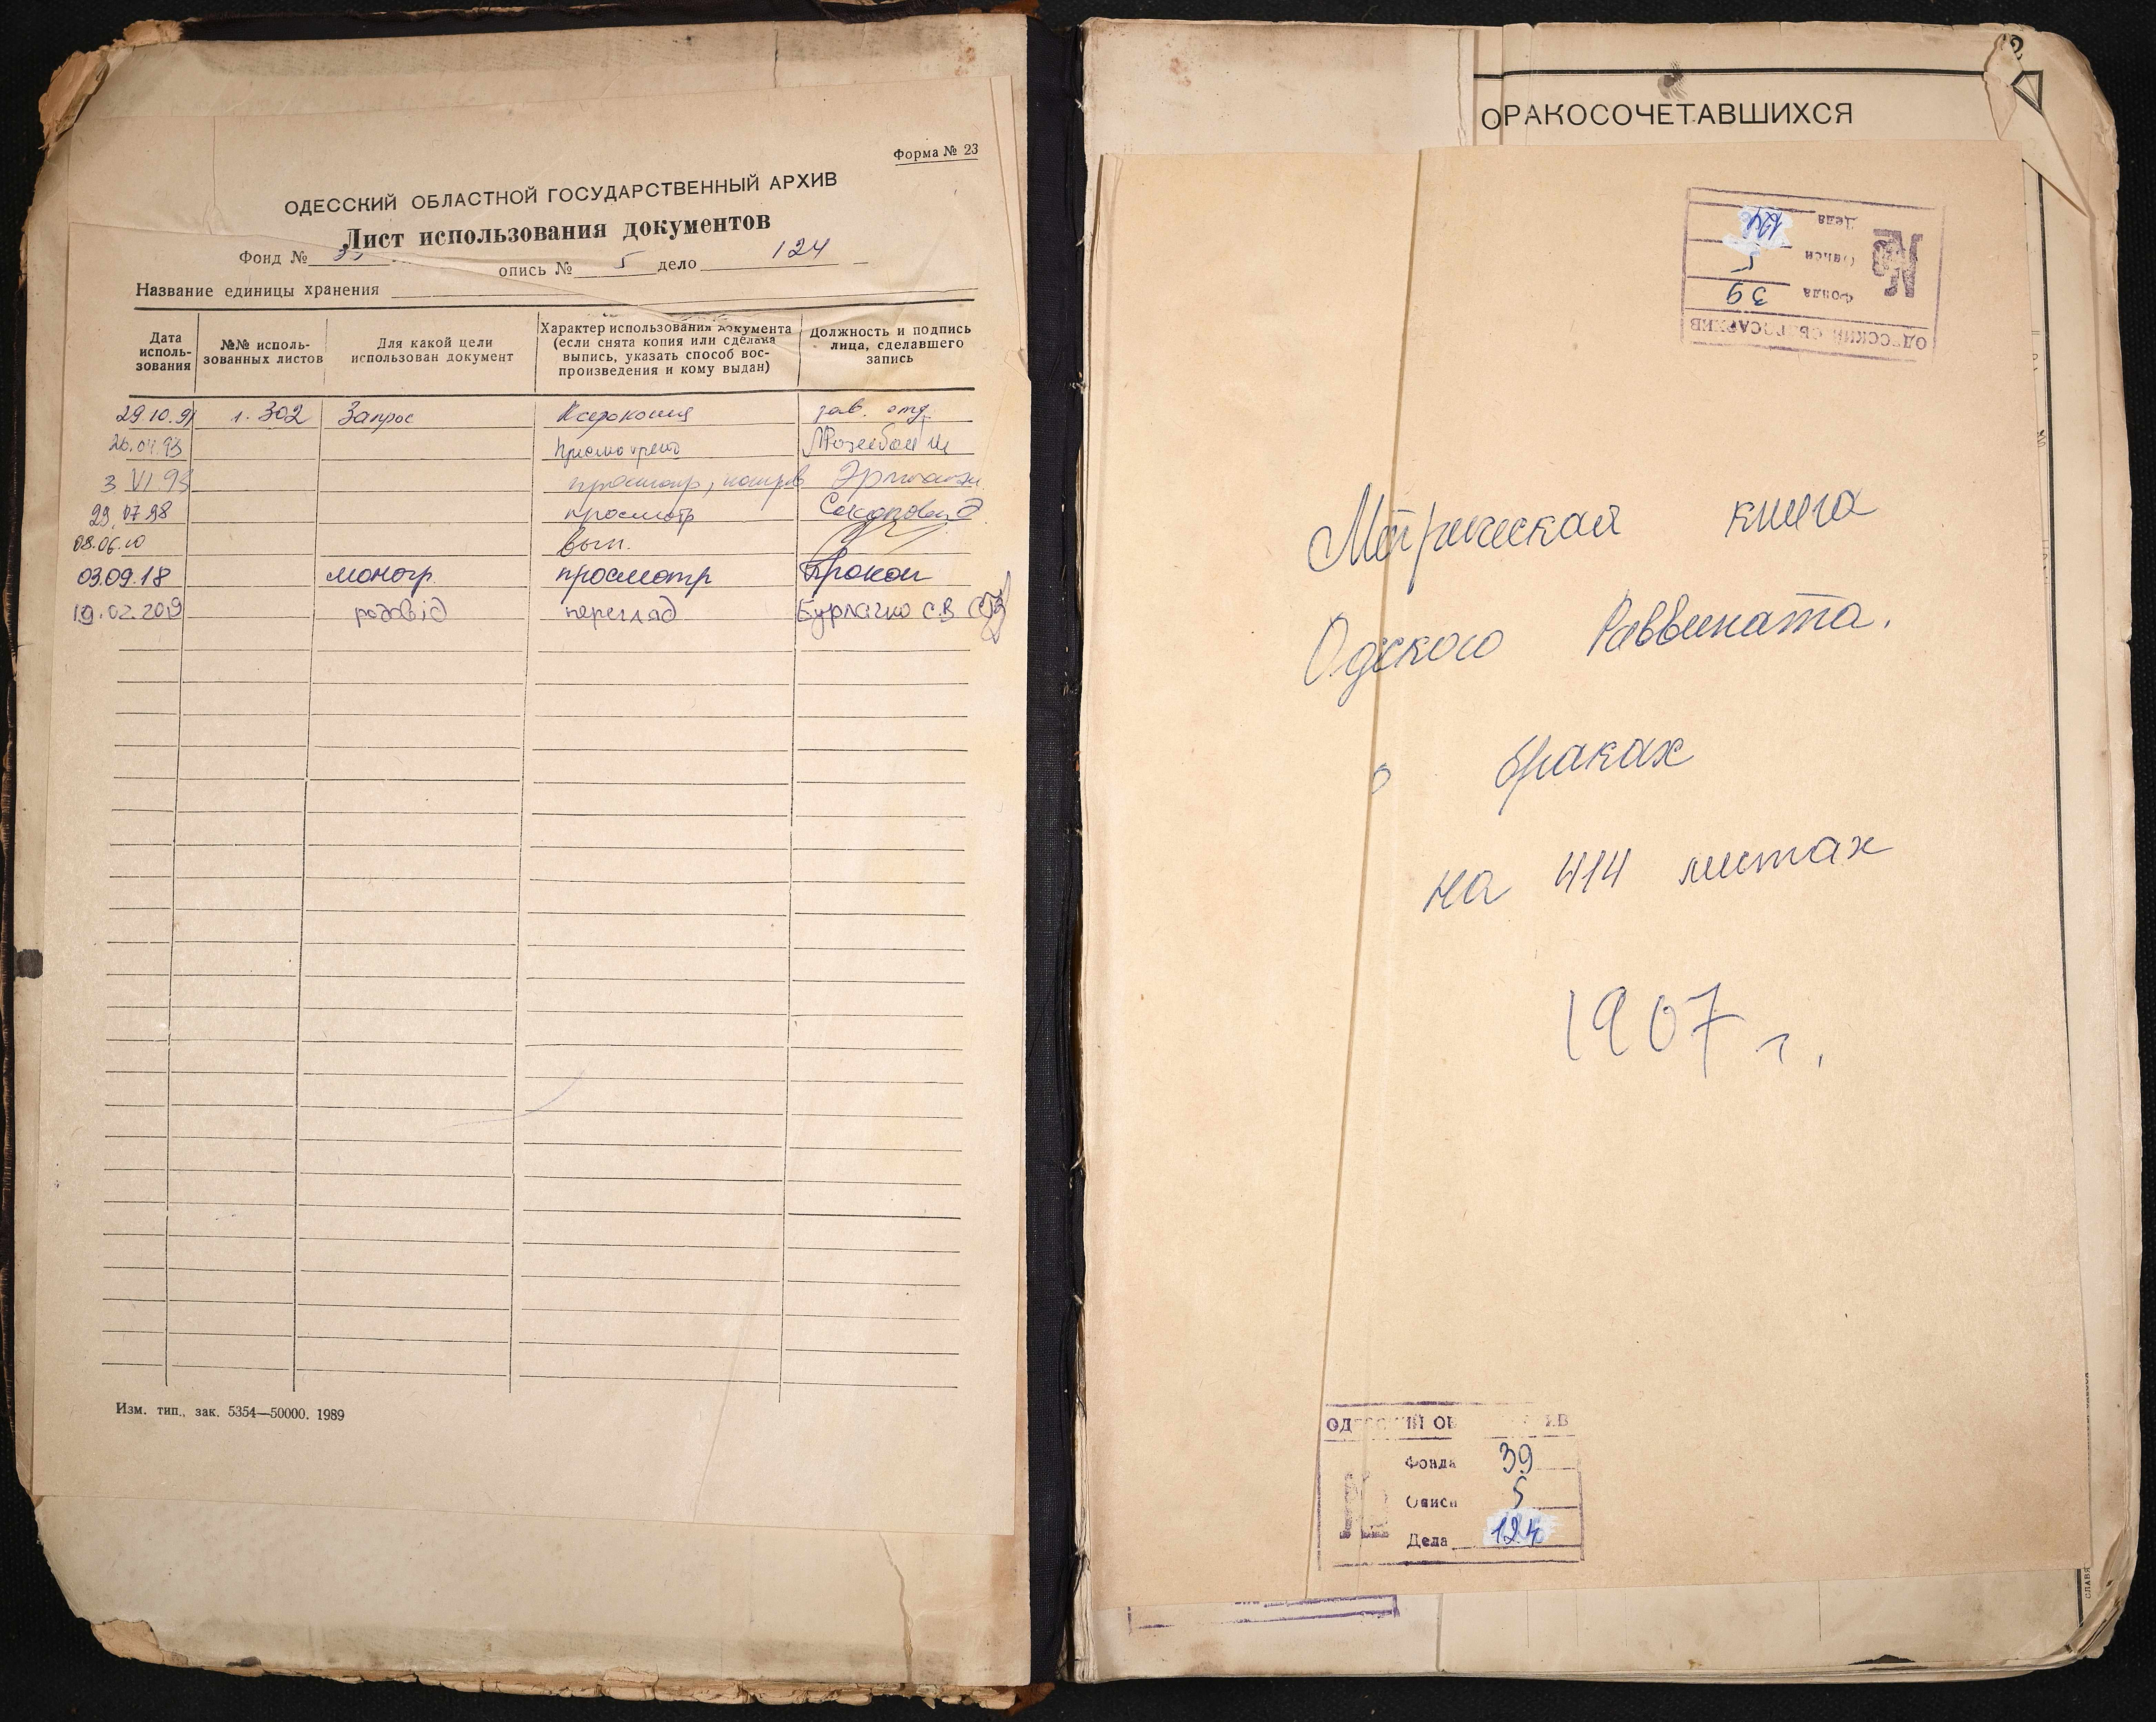 Форма № 23
ОДЕССКИЙ ОБЛАСТНОЙ ГОСУДАРСТВЕННЫЙ АРХИВ
Лист использования документов
Фонд № опись № 5 дело 124
Название единицы хранения
Дата исполь-зования
№№ исполь-зованных листов
Для какой цели использован документ
Характер использования документа (если снята копия или сделана выпись, указать способ вос-произведения и кому выдан)
Должность и подпись лица, сделавшего запись
29.10.91 л. 302 Запрос Ксерокопия зав. отд.
26.04.93
3 VI.93 просмотр,
29.07.98 просмотр
08.06.10
03.09.18 моногр. просмотр
19.02.2019 родовід перегляд Бурлачко С.В
Изм. тип., зак. 5354—50000. 1989
2
ОРАКОСОЧЕТАВШИХСЯ
ОДЕССКИЙ
Фонда 39
Описи 5
Дела 124
Метрическая книга
Одского Раввината.
о браках
на 414 листах
1907 г.
Фонда 39
Описи 5
Дела 124